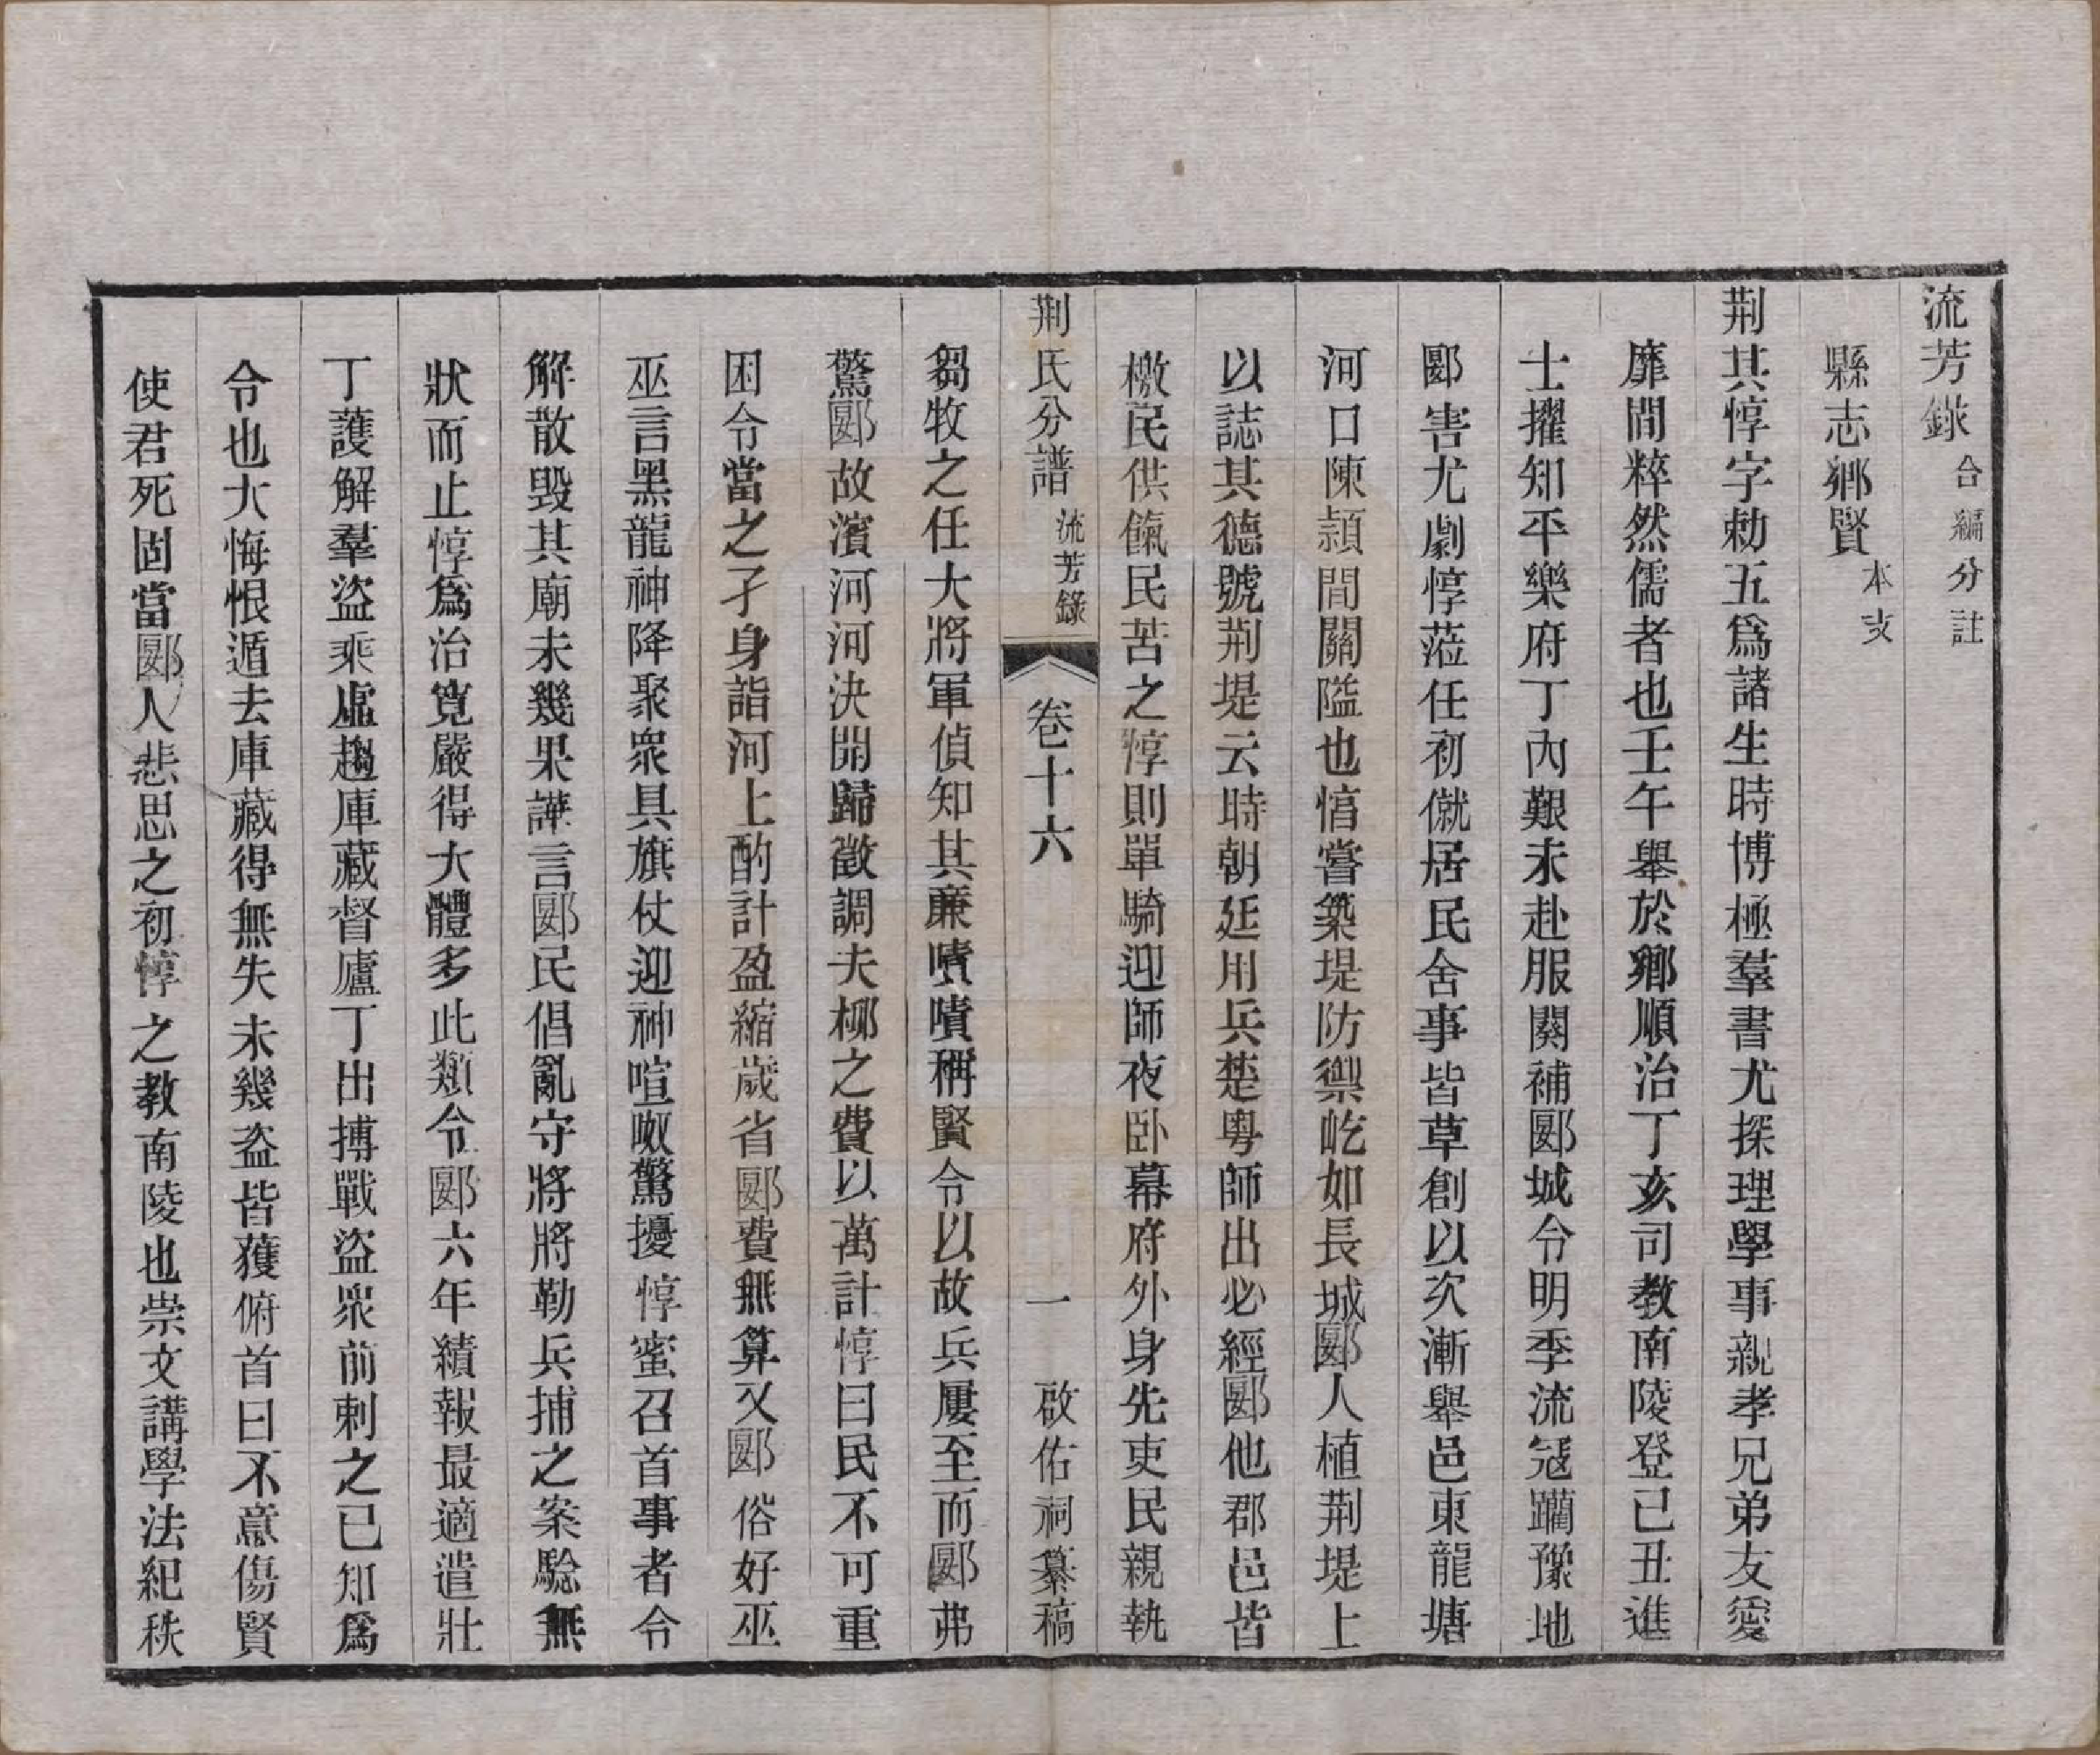 流芳錄 合編分註
縣志鄉賢 本支
荆其惇字勅五爲諸生時博極羣書尤探理學事親孝兄弟友愛
靡間粹然儒者也壬午舉於鄉順治丁亥司教南陵登己丑進
士擢知平樂府丁內艱未赴服闋補郾城令明季流冦躪豫地
郾害尤劇惇蒞任初僦居民舍事皆草創以次漸舉邑東龍塘
河口陳潁間關隘也惇嘗築堤防禦屹如長城郾人植荆堤上
以誌其德號荆堤云時朝廷用兵楚粵師出必經郾他郡邑皆
檄民供餼民苦之惇則單騎迎師夜卧幕府外身先吏民親執
芻牧之任大將軍偵知其廉嘖嘖稱賢令以故兵屢至而郾弗
驚郾故濱河河決開歸徵調夫柳之費以萬計惇曰民不可重
困令當之孑身詣河上酌計盈縮歲省郾費無算又郾俗好巫
巫言黑龍神降聚衆具旗仗迎神喧呶驚擾惇蜜召首事者令
解散毀其廟未幾果譁言郾民倡亂守將將勒兵捕之案驗無
狀而止惇爲治寬嚴得大體多此類令郾六年績報最適遣壯
丁護解羣盜乘虛趨庫藏督廬丁出搏戰盜衆前刺之已知爲
令也大悔恨遁去庫藏得無失未幾盜皆獲俯首曰不意傷賢
使君死固當郾人悲思之初惇之教南陵也崇文講學法紀秩
荆氏分譜 流芳錄 卷十六 一 啟佑祠纂稿